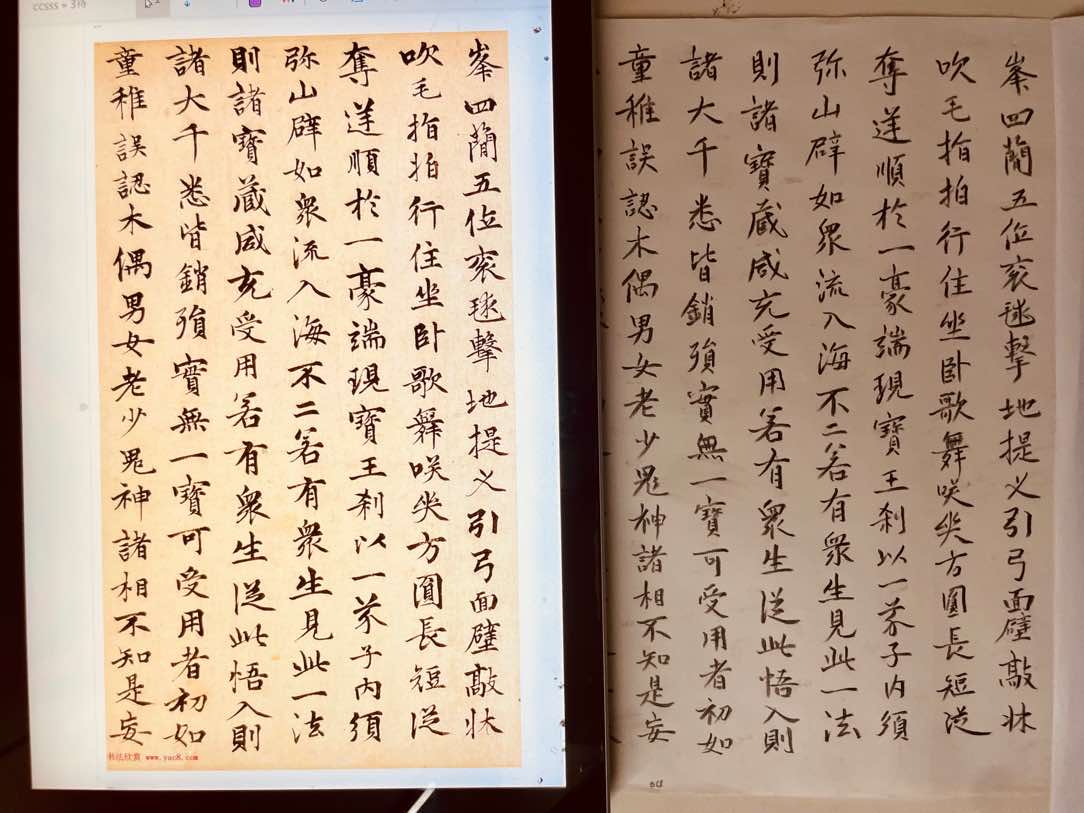 CCSSS = 3待
峯四蕳五位衮毬擊地提义引弓面壁敲牀
吹毛拍拍行住坐卧歌舞咲㘴方圓長短從
奪逆順於一豪端現寶王刹以一芥子内須
弥山辟如衆流入海不二若有衆生見此一法
則諸寶藏咸充受用若有衆生從此悟入則
諸大千悉皆銷殞實無一寶可受用者初如
童稚誤認木偶男女老少鬼神諸相不知是妄
书法欣赏 www.yac8.com
峯四蕳五位衮毬擊地提义引弓面壁敲牀
吹毛拍拍行住坐卧歌舞咲㘴方圓長短從
奪逆順於一豪端現寶王刹以一芥子内須
弥山辟如衆流入海不二若有衆生見此一法
則諸寶藏咸充受用若有衆生從此悟入則
諸大千悉皆銷殞實無一寶可受用者初如
童稚誤認木偶男女老少鬼神諸相不知是妄